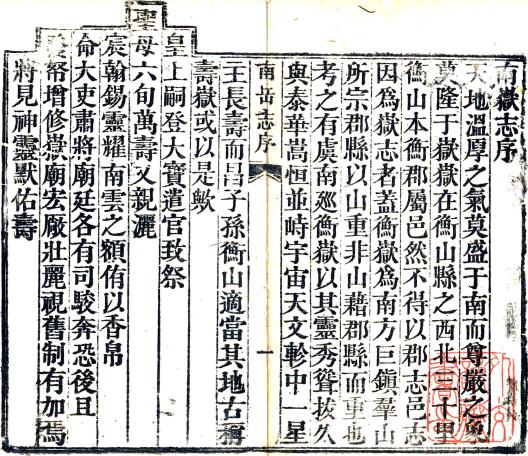 南嶽志序
天地溫厚之氣莫盛于南而尊嚴之象
莫隆于嶽嶽在衡山縣之西北三十里
衡山本衡郡屬邑然不得以郡志邑志
因爲嶽志者蓋衡嶽爲南方巨鎮羣山
所宗郡縣以山重非山藉郡縣而重也
考之有虞南廵衡嶽以其靈秀聳拔久
與泰華嵩恒並峙宇宙天文軫中一星
南岳志序 一
主長壽而昌子孫衡山適當其地古稱
壽嶽或以是歟
皇上嗣登大寶遣官致祭
聖母六旬萬壽又親灑
宸翰錫靈耀南雲之額侑以香帛
命大吏肅將廟廷各有司駿奔恐後且
帑增修嶽廟宏厰壯麗視舊制有加焉
將見神靈默佑壽